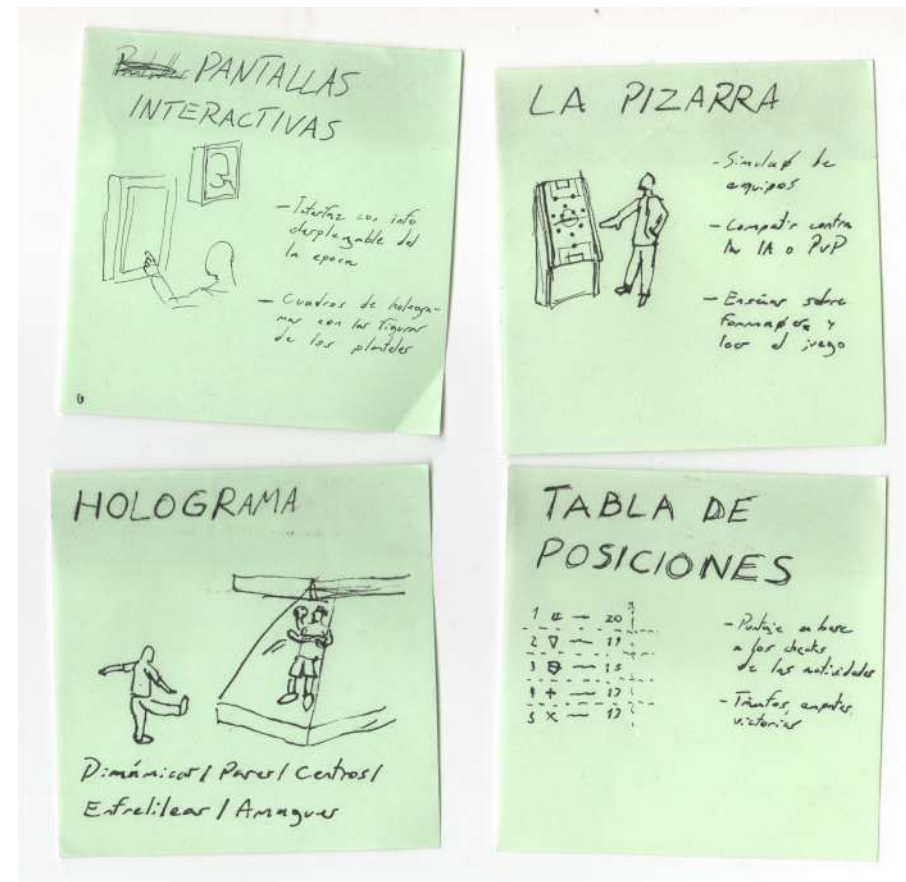 PANTALLAS
INTERACTIVAS
- Interfaz con info
desplegable de
la epoca
- Cuadros de hologra-
mas con las figuras
de los planteles
LA PIZARRA
- Simulaø de
equipos
- Competir contra
la IA o PvP
- Enseñar sobre
y
leer el juego
HOLOGRAMA
Dinámicas / Pases / Centros /
/ Amagues
TABLA DE
POSICIONES
1 20
2 19
3 15
4 + 13
5 X 13
- Puntaje en base
a los checks
de las actividades
- Triunfos, empates,
victorias